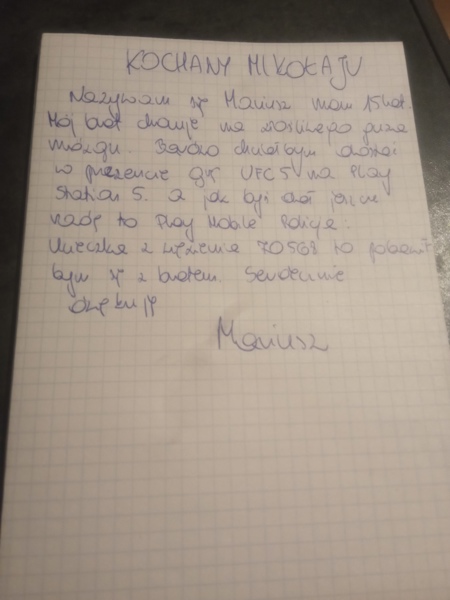 KOCHANY MIKOŁAJU
Nazywam się Mariusz mam 15 lat.
Mój brat choruje na złośliwego guza
mózgu. Bardzo chciałbym dostać
w prezencie grę UFC5 na Play
Station 5. a jak byś dał jeszcze
radę to Play Mobile Policja:
Ucieczka z więzienia 70568 to pobawił
bym się z bratem. Serdecznie
dziękuję
Mariusz